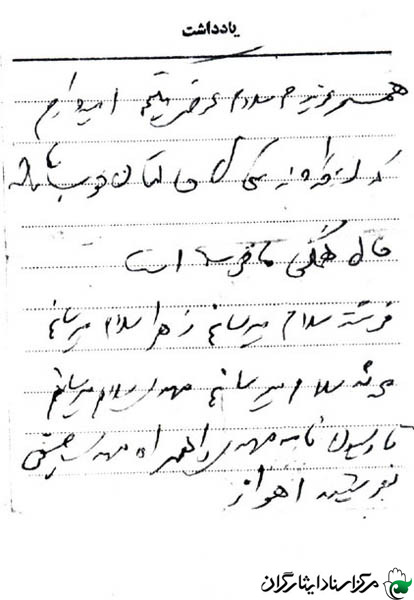 یادداشت
همسر عزیزم سلام عرض میکنم امیدوارم
که حالتان خوب باشد
حال همگی ما خوب است
فرشته سلام میرساند زهرا سلام میرساند
سلام میرساند مهدی سلام میرساند
نامه مهدی را همراه
بفرستید اهواز
مرکز اسناد ایثارگران